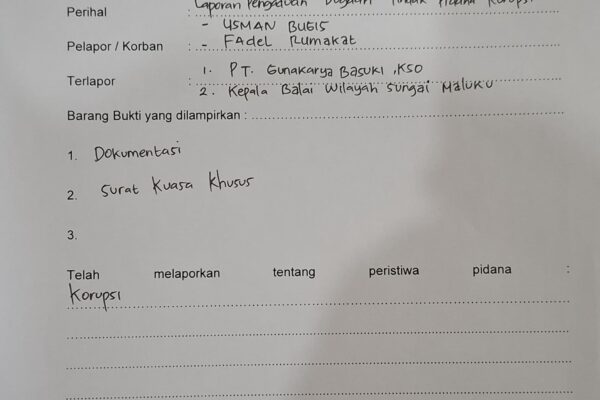 Perihal : Laporan Pengaduan Dugaan Tindak Pidana Korupsi
- USMAN BUGIS
Pelapor / Korban : - FAdeL RumAKAT
Terlapor : 1. PT. Gunakarya Basuki, KSO
2. Kepala Balai Wilayah Sungai Maluku
Barang Bukti yang dilampirkan :
1. Dokumentasi
2. Surat Kuasa Khusus
3.
Telah melaporkan tentang peristiwa pidana :
Korupsi